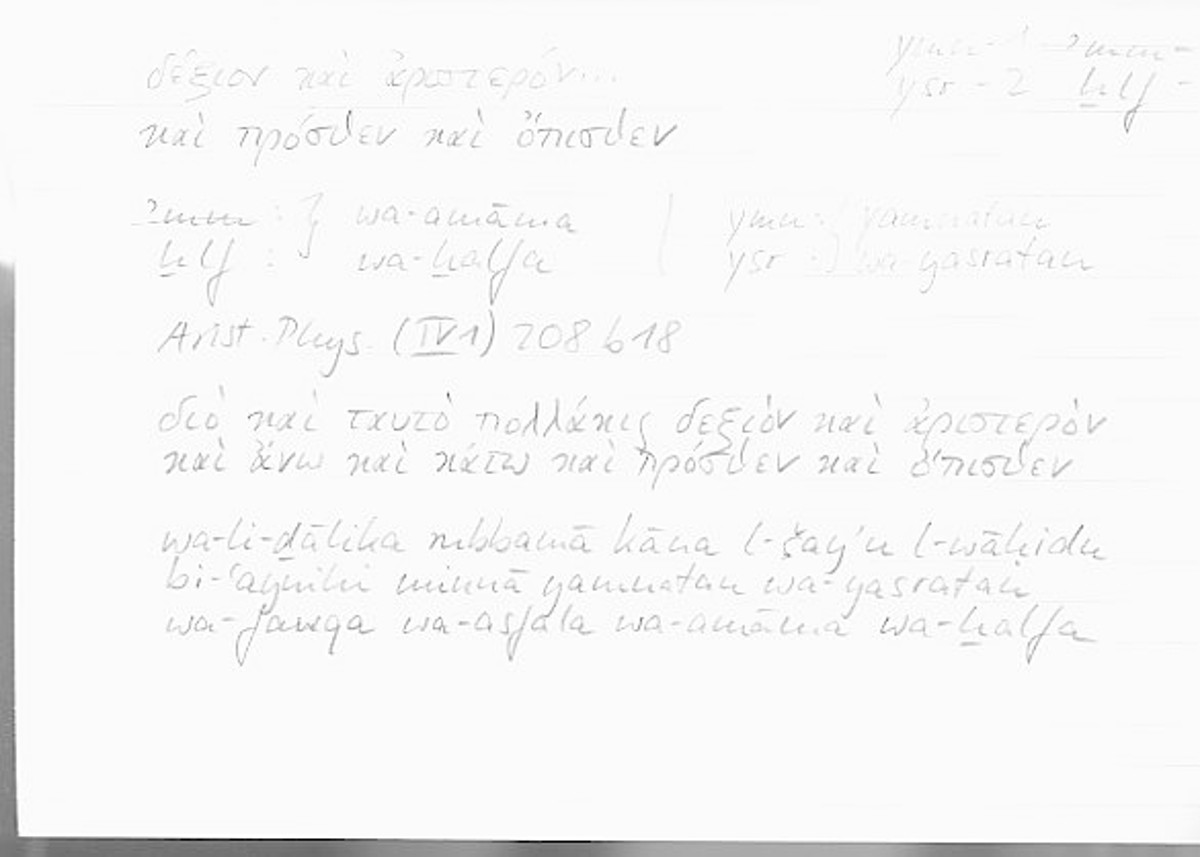 δέξιον καὶ ἀριστερόν...
ymn - 1 ʾmm -
ysr - 2 ḫlf -
καὶ πρόσθεν καὶ ὄπισθεν
ʾmm : } wa-amāma | ymn : } yamnatan
ḫlf : wa-ḫalfa ysr : wa-yasratan
Arist. Phys. (IV 1) 208 b 18
διὸ καὶ ταὐτὸ πολλάκις δεξιὸν καὶ ἀριστερὸν
καὶ ἄνω καὶ κάτω καὶ πρόσθεν καὶ ὄπισθεν
wa-li-ḏālika rubbamā kāna l-šayʾu l-wāḥidu
bi-ʿaynihi minnā yamnatan wa-yasratan
wa-fawqa wa-asfala wa-amāma wa-ḫalfa